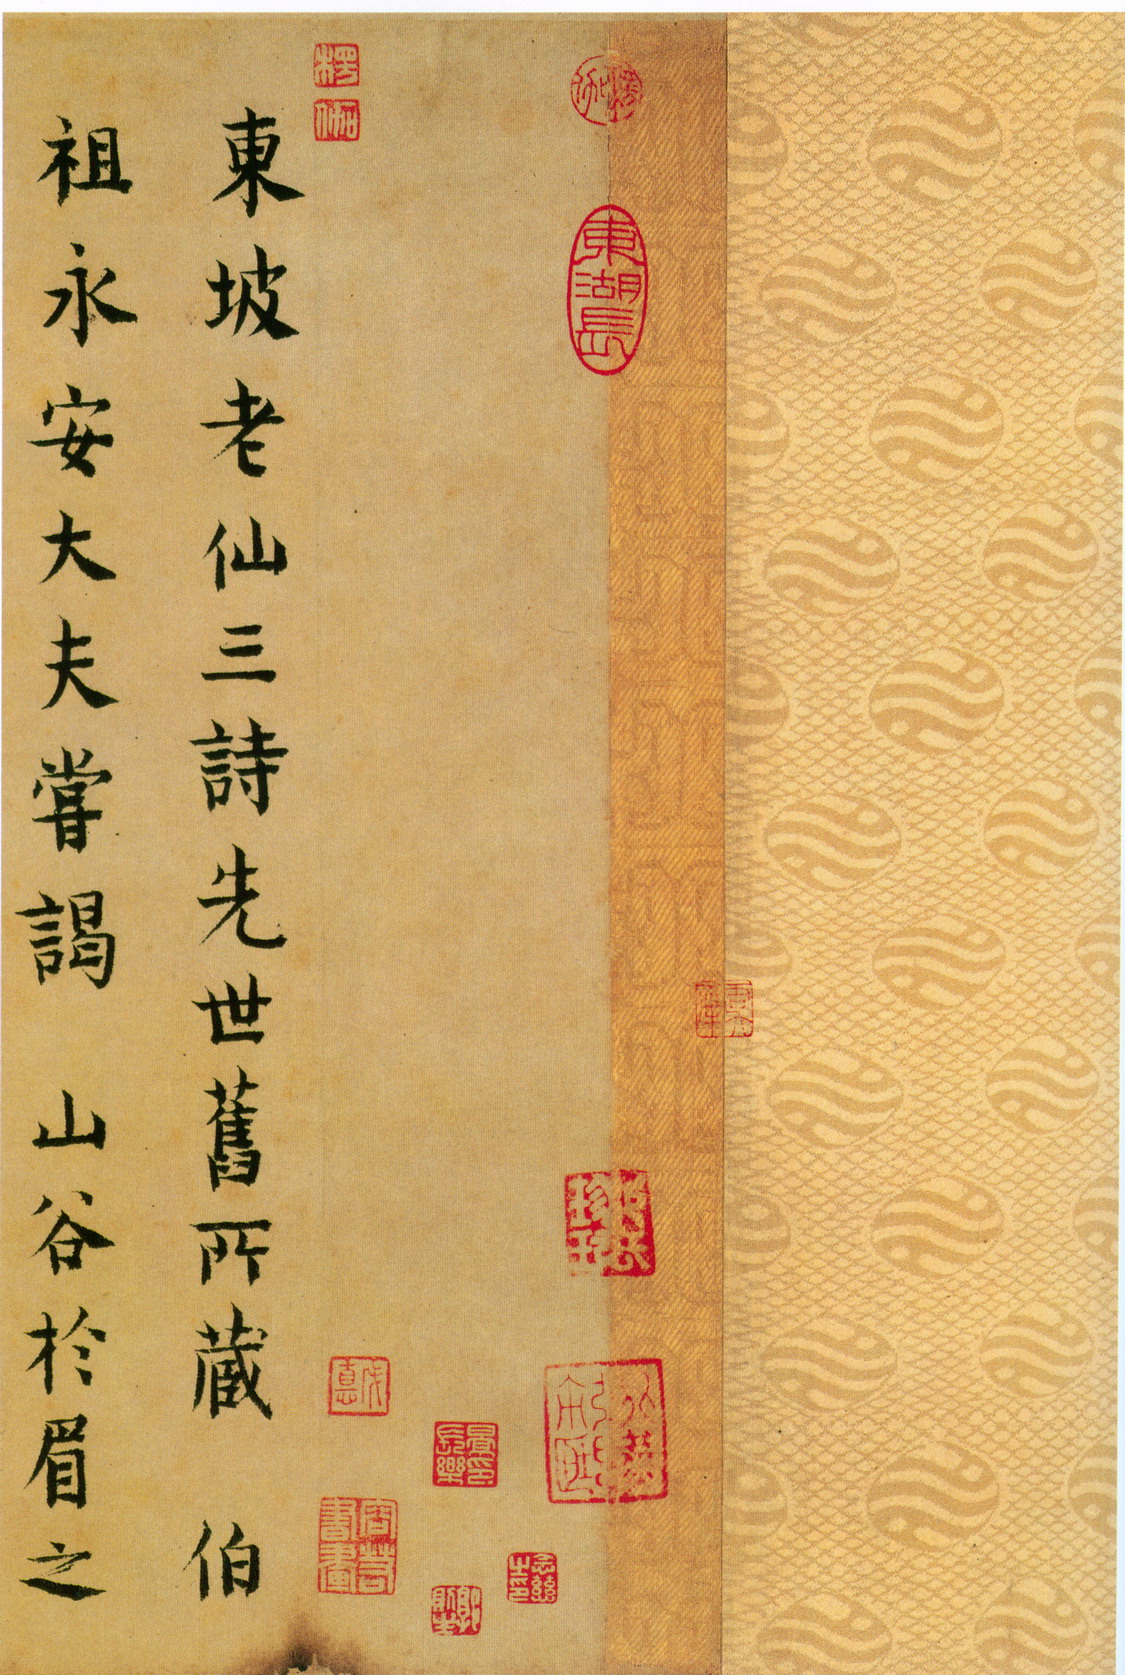 東坡老仙三詩先世舊所藏 伯
祖永安大夫嘗謁 山谷於眉之
東湖長
楞伽